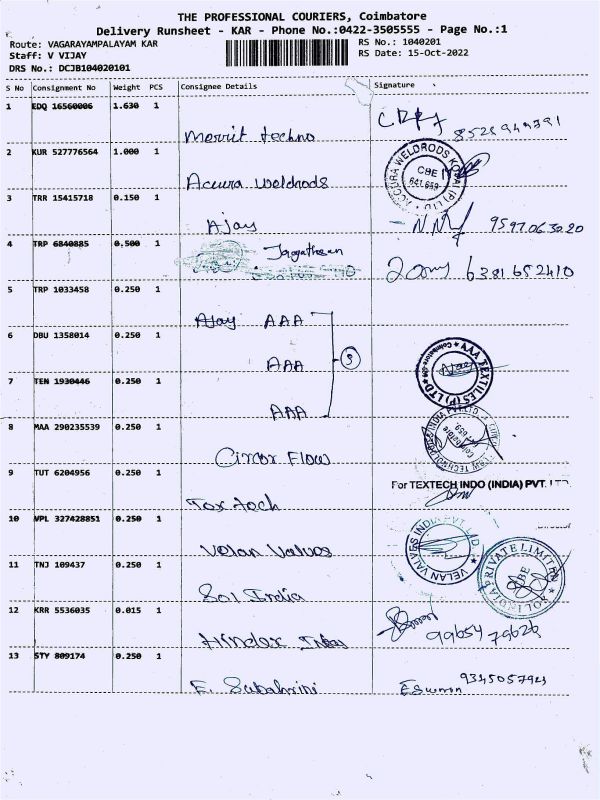 THE PROFESSIONAL COURIERS, Coimbatore
Delivery Runsheet - KAR - Phone No.:0422-3505555 - Page No.:1
Route: VAGARAYAMPALAYAM KAR RS No.: 1040201
Staff: V VIJAY RS Date: 15-Oct-2022
DRS No.: DCJB104020101
S No Consignment No Weight PCS Consignee Details Signature
1 EDQ 16560006 1.630 1
Merrit techno 8528949391
2 KUR 527776564 1.000 1
Accura Weldrods ACCURA WELDRODS KOVAI (P) LTD CBE 641 659
3 TRR 15415718 0.150 1
Ajay 9597063020
4 TRP 6840885 0.500 1
Jagathesan 6381652410
5 TRP 1033458 0.250 1
Ajay AAA
6 DBU 1358014 0.250 1
AAA 3
7 TEN 1930446 0.250 1
AAA AAA TEXTILES (P) LTD Coimbatore
8 MAA 290235539 0.250 1
Circor Flow
9 TUT 6204956 0.250 1
For TEXTECH INDO (INDIA) PVT. LTD
Tex tech
10 VPL 327428851 0.250 1
Velan Valves VELAN VALVES INDIA PVT. LTD.
11 TNJ 109437 0.250 1
Sol India SOL INDIA PRIVATE LIMITED CBE
12 KRR 5536035 0.015 1
Hindex 9965479626
13 STY 809174 0.250 1
E. Subahrini 9345057921